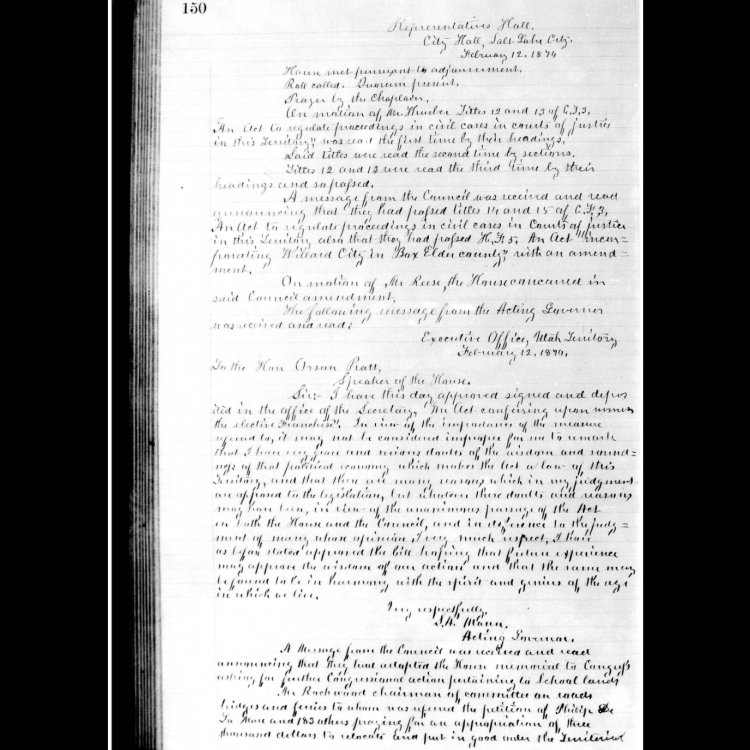 150
Representatives Hall.
City Hall, Salt Lake City.
February 12. 1870
House met pursuant to adjournment.
Roll called. Quorum present.
Prayer by the Chaplain.
On motion of Mr. Thurber Titles 12 and 13 of C.F. 3,
"An Act to regulate proceedings in civil cases in courts of justice
in this Territory," was read the first time by their headings.
Said titles were read the second time by sections.
Titles 12 and 13 were read the third time by their
headings and so passed.
A message from the Council was received and read
announcing that they had passed titles 14 and 15 of C.F. 3,
An Act to regulate proceedings in civil cases in Courts of justice
in this Territory, also that they had passed H.F. 5, An Act "incor=
porating Willard City in "Box Elder county," with an amend=
ment.
On motion of Mr. Reese, the House concurred in
said Council amendment.
The following message from the Acting Governor
was received and read;
Executive Office, Utah Territory
February 12. 1870.
To the Hon Orson Pratt,
Speaker of the House.
Sir:- I have this day approved signed and depos
ited in the office of the Secretary, "An Act conferring upon women
the elective Franchise". In view of the importance of the measure
referred to, it may not be considered improper for me to remark
that I have very grave and serious doubts of the wisdom and sound=
ness of that political economy which makes the Act a law of this
Territory, and that there are many reasons which in my judgment
are opposed to the legislation, but whatever these doubts and reasons
may have been, in view of the unanimous passage of the Act
in both the House and the Council, and in deference to the judg=
ment of many whose opinion I very much respect, I have
as before stated approved the bill hoping that future experience
may approve the wisdom of our action and that the same may
be found to be in harmony with the spirit and genius of the age
in which we live.
Very respectfully,
S.A. Mann,
Acting Governor.
A Message from the Council was received and read
announcing that they had adopted the House memorial to Congress
asking for further Congressional action pertaining to School lands
Mr Rockwood chairman of committee on roads
bridges and ferries to whom was referred the petition of Philip De
La Mare and 183 others praying for an appropriation of three
thousand dollars to relocate and put in good order the Territorial